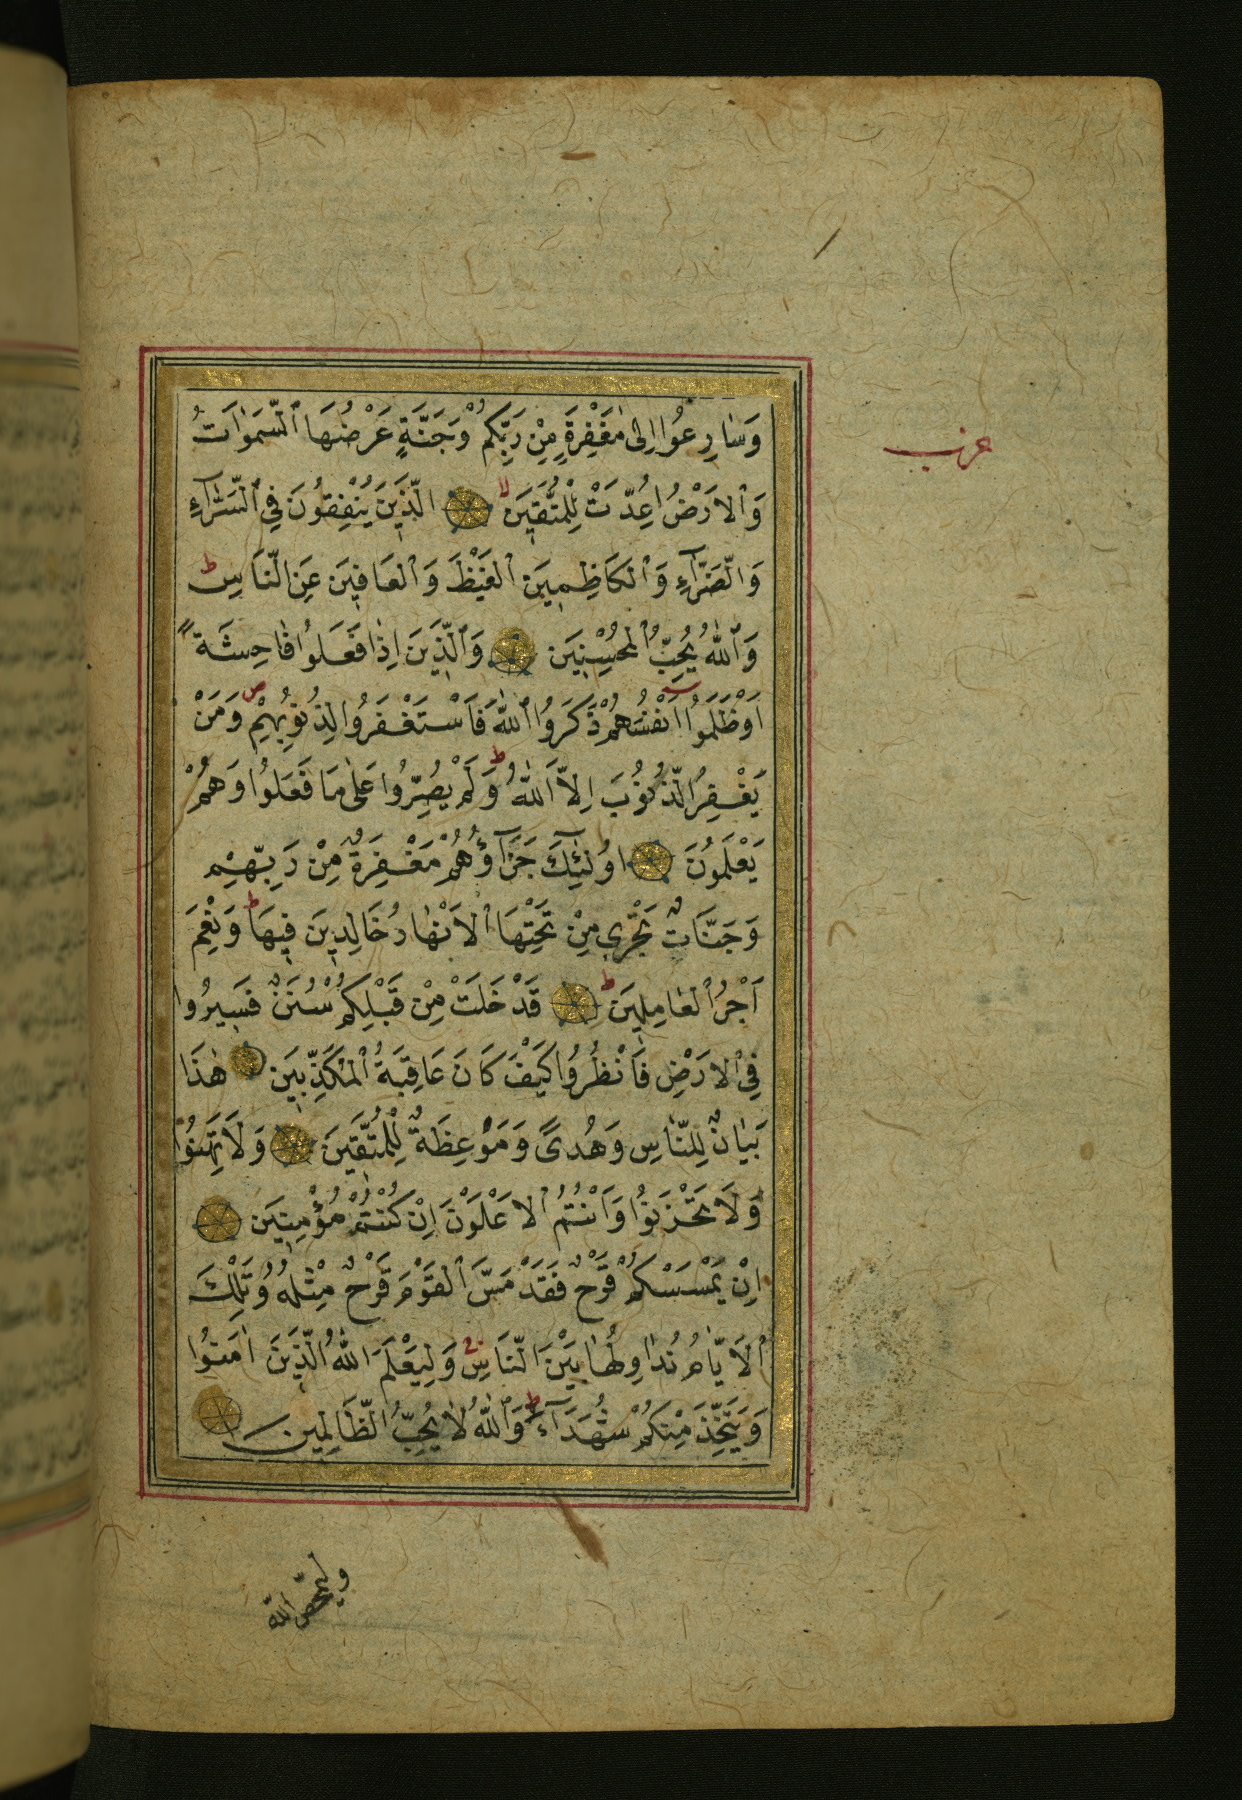 وَسَارِعُوا اِلٰى مَغْفِرَةٍ مِنْ رَبِّكُمْ وَجَنَّةٍ عَرْضُهَا ٱلسَّمٰوَاتُ
وَٱلْاَرْضُ اُعِدَّتْ لِلْمُتَّقِينَ لا الَّذِينَ يُنْفِقُونَ فِي ٱلسَّرَّآءِ
وَالضَّرَّآءِ وَٱلْكَاظِمِينَ ٱلْغَيْظَ وَٱلْعَافِينَ عَنِ النَّاسِ ط
وَٱللّٰهُ يُحِبُّ ٱلْمُحْسِنِينَ وَٱلَّذِينَ اِذَا فَعَلُوا فَاحِشَةً
اَوْ ظَلَمُوا اَنْفُسَهُمْ ذَكَرُوا ٱللّٰهَ فَاسْتَغْفَرُوا لِذُنُوبِهِمْ ص وَمَنْ
يَغْفِرُ الذُّنُوبَ اِلَّا اللّٰهُ ط وَلَمْ يُصِرُّوا عَلٰى مَا فَعَلُوا وَهُمْ
يَعْلَمُونَ اُولٰٓئِكَ جَزَآؤُهُمْ مَغْفِرَةٌ مِنْ رَبِّهِمْ
وَجَنَّاتٌ تَجْرِي مِنْ تَحْتِهَا ٱلْاَنْهَارُ خَالِدِينَ فِيهَا ط وَنِعْمَ
اَجْرُ ٱلْعَامِلِينَ ط قَدْ خَلَتْ مِنْ قَبْلِكُمْ سُنَنٌ فَسِيرُوا
فِي ٱلْاَرْضِ فَانْظُرُوا كَيْفَ كَانَ عَاقِبَةُ ٱلْمُكَذِّبِينَ هٰذَا
بَيَانٌ لِلنَّاسِ وَهُدىً وَمَوْعِظَةٌ لِلْمُتَّقِينَ وَلَا تَهِنُوا
وَلَا تَحْزَنُوا وَاَنْتُمُ ٱلْاَعْلَوْنَ اِنْ كُنْتُمْ مُؤْمِنِينَ
اِنْ يَمْسَسْكُمْ قَرْحٌ فَقَدْ مَسَّ ٱلْقَوْمَ قَرْحٌ مِثْلُهُ وَتِلْكَ
ٱلْاَيَّامُ نُدَاوِلُهَا بَيْنَ النَّاسِ وَلِيَعْلَمَ اللّٰهُ الَّذِينَ اٰمَنُوا
وَيَتَّخِذَ مِنْكُمْ شُهَدَآءَ ط وَٱللّٰهُ لَا يُحِبُّ الظَّالِمِينَ
وليمحّص اللّه